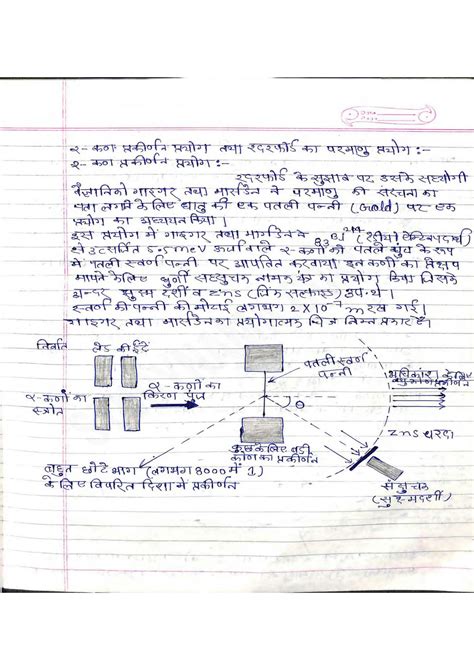 α-कण प्रकीर्णन प्रयोग तथा रदरफोर्ड का परमाणु प्रयोग:-
α-कण प्रकीर्णन प्रयोग:-
रदरफोर्ड के सुझाव पर उसके सहयोगी
वैज्ञानिको गाइगर तथा मार्सडेन ने परमाणु की संरचना का
पता लगाने के लिए धातु की एक पतली पन्नी (Gold) पर एक
प्रयोग का अध्ययन किया।
इस प्रयोग में गाइगर तथा मार्सडेन ने 83Bi214
से उत्सर्जित 5.5 MeV ऊर्जा वाले α-कणों की पतले पुंज के रूप
में पतली स्वर्ण पन्नी पर आपतित करवाया। इन कणों का विक्षेप
मापने के लिए घूर्णी संसूचक नामक यंत्र का प्रयोग किया जिसके
अन्दर सूक्ष्मदर्शी व ZnS (जिंक सल्फाइड) उप. थे।
स्वर्ण की पन्नी की मोटाई लगभग 2 X 10-7 m रखी गई।
गाइगर तथा मार्सडेन का प्रयोगात्मक चित्र निम्न प्रकार है।
निर्वात
लेड की ईंटे
पतली स्वर्ण
पन्नी
α-कणों का
स्रोत
α-कणों का
किरण पुंज
θ
ZnS परदा
कुछ के लिए बड़ी
कोण का प्रकीर्णन
बहुत छोटे भाग (लगभग 8000 में 1)
के लिए विपरित दिशा में प्रकीर्णन
संसूचक
(सूक्ष्मदर्शी)